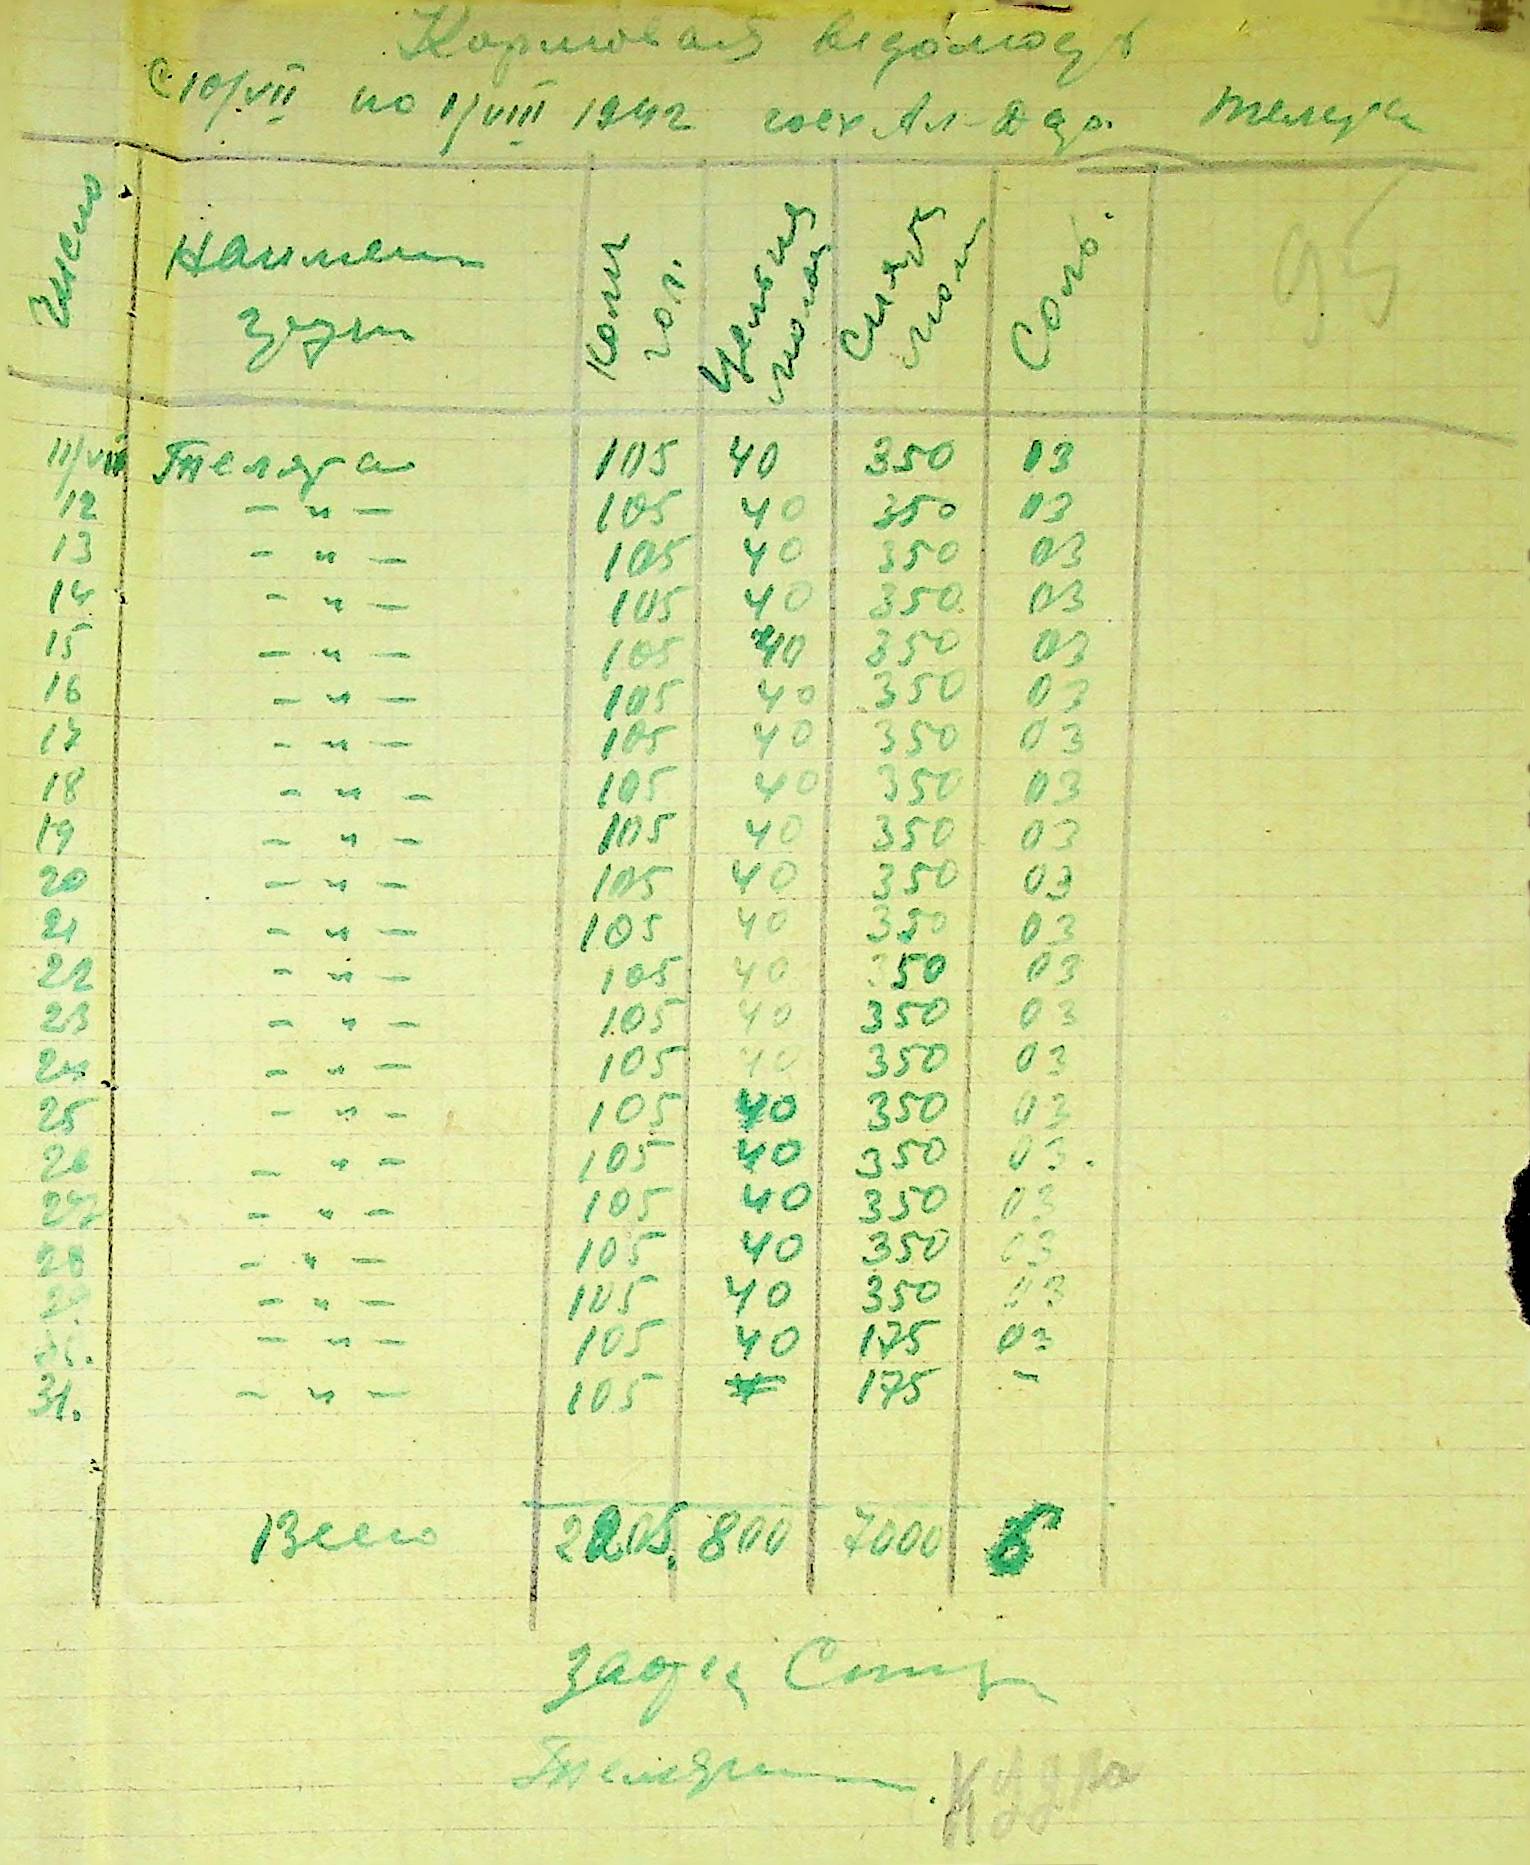 Кормовая ведомость
С 10/VII по 1/VIII 1942 Ал- Телята
95
Число Наимен групп Колич гол. Цельное молок Снятое молок Соль.
11/VII Телята 105 40 350 03
12 – " – 105 40 350 03
13 – " – 105 40 350 03
14 – " – 105 40 350 03
15 – " – 105 40 350 03
16 – " – 105 40 350 03
17 – " – 105 40 350 03
18 – " – 105 40 350 03
19 – " – 105 40 350 03
20 – " – 105 40 350 03
21 – " – 105 40 350 03
22 – " – 105 40 350 03
23 – " – 105 40 350 03
24 – " – 105 40 350 03
25 – " – 105 40 350 03
26 – " – 105 40 350 03.
27 – " – 105 40 350 03
28 – " – 105 40 350 03
29 – " – 105 40 350 03
– " – 105 40 175 03
31. – " – 105 175 –
Всего 2205. 800 7000 6
Телятн